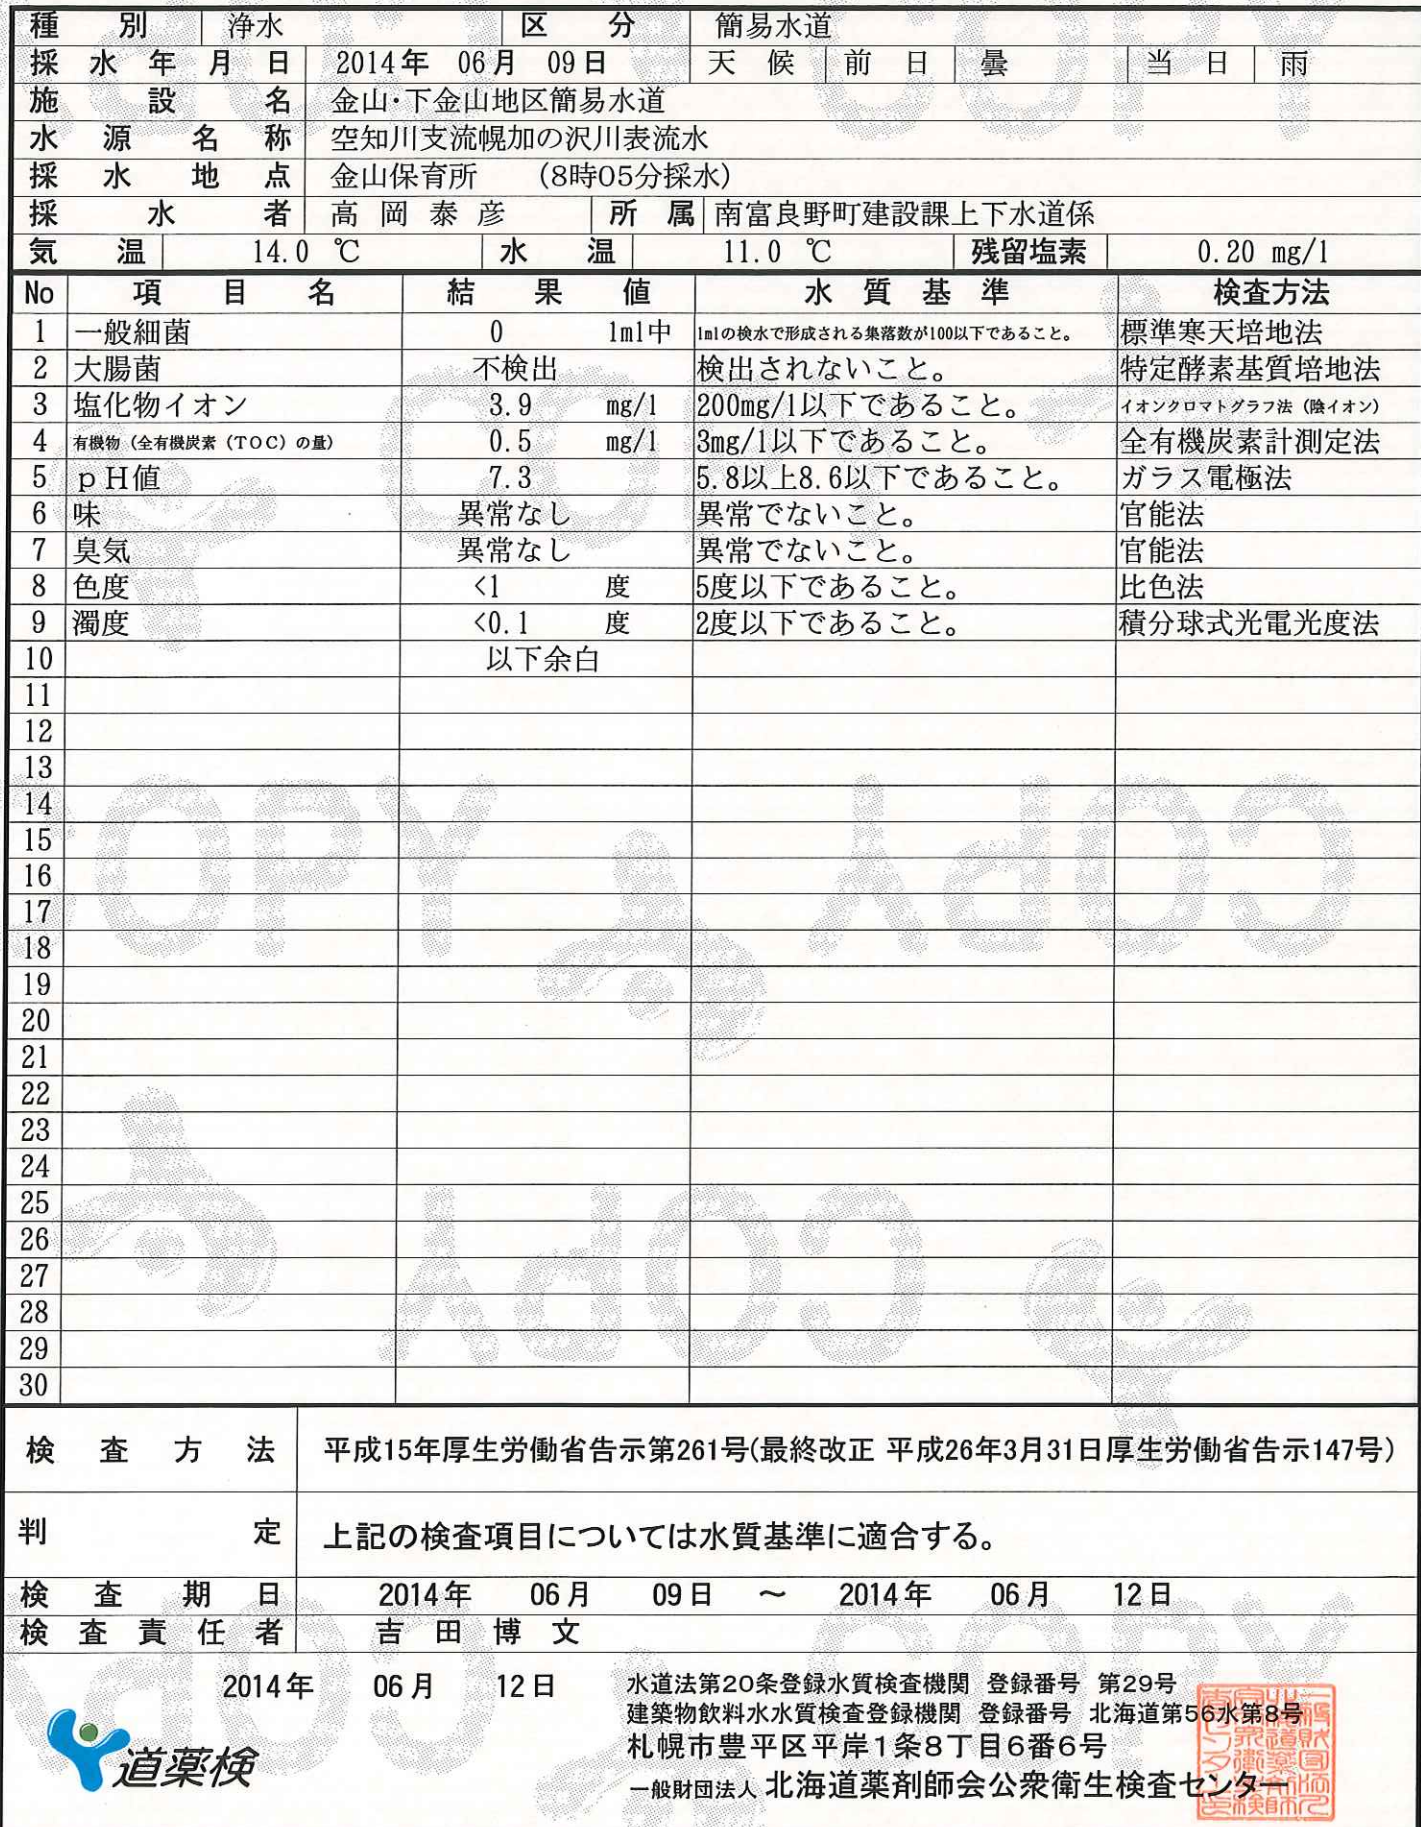 種別 浄水 区分 簡易水道
採水年月日 2014年 06月 09日 天候 前日 曇 当日 雨
施設名 金山・下金山地区簡易水道
水源名称 空知川支流幌加の沢川表流水
採水地点 金山保育所 (8時05分採水)
採水者 高岡泰彦 所属 南富良野町建設課上下水道係
気温 14.0 ℃ 水温 11.0 ℃ 残留塩素 0.20 mg/l
No 項目名 結果値 水質基準 検査方法
1 一般細菌 0 1ml中 1mlの検水で形成される集落数が100以下であること。 標準寒天培地法
2 大腸菌 不検出 検出されないこと。 特定酵素基質培地法
3 塩化物イオン 3.9 mg/l 200mg/l以下であること。 イオンクロマトグラフ法（陰イオン）
4 有機物（全有機炭素（TOC）の量） 0.5 mg/l 3mg/l以下であること。 全有機炭素計測定法
5 pH値 7.3 5.8以上8.6以下であること。 ガラス電極法
6 味 異常なし 異常でないこと。 官能法
7 臭気 異常なし 異常でないこと。 官能法
8 色度 <1 度 5度以下であること。 比色法
9 濁度 <0.1 度 2度以下であること。 積分球式光電光度法
10 以下余白
11
12
13
14
15
16
17
18
19
20
21
22
23
24
25
26
27
28
29
30
検査方法 平成15年厚生労働省告示第261号(最終改正 平成26年3月31日厚生労働省告示147号)
判定 上記の検査項目については水質基準に適合する。
検査期日 2014年 06月 09日 ～ 2014年 06月 12日
検査責任者 吉田博文
2014年 06月 12日
水道法第20条登録水質検査機関 登録番号 第29号
建築物飲料水水質検査登録機関 登録番号 北海道第56水第8号
札幌市豊平区平岸1条8丁目6番6号
一般財団法人 北海道薬剤師会公衆衛生検査センター
道薬検
COPY
COPY
COPY
COPY
COPY
COPY
COPY